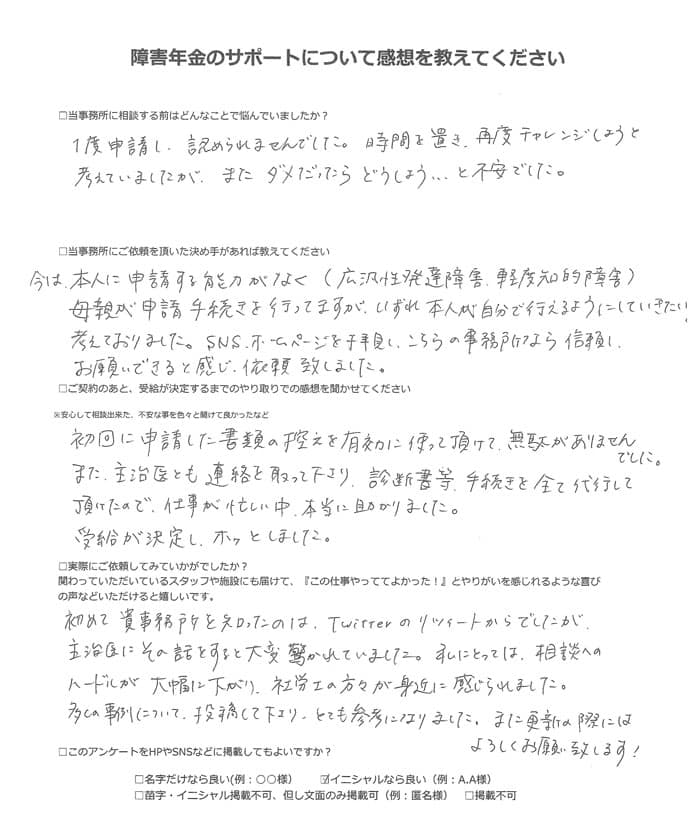 障害年金のサポートについて感想を教えてください
□当事務所に相談する前はどんなことで悩んでいましたか？
1度申請し、認められませんでした。時間を置き、再度チャレンジしようと
考えていましたが、またダメだったらどうしよう...と不安でした。
□当事務所にご依頼を頂いた決め手があれば教えてください
今は、本人に申請する能力がなく（広汎性発達障害、軽度知的障害）
母親が申請手続きを行ってますが、いずれ本人が自分で行えるようにしていきたい
考えておりました。SNS、ホームページを拝見し、こちらの事務所なら信頼し、
お願いできると感じ、依頼致しました。
□ご契約のあと、受給が決定するまでのやり取りでの感想を聞かせてください
※安心して相談出来た、不安な事を色々と聞けて良かったなど
初回に申請した書類の控えを有効に使って頂けて、無駄がありません
でした。
また、主治医とも連絡を取って下さり、診断書等、手続きを全て代行して
頂けたので、仕事が忙しい中、本当に助かりました。
受給が決定し、ホッとしました。
□実際にご依頼してみていかがでしたか？
関わっていただいているスタッフや施設にも届けて、『この仕事やっててよかった！』とやりがいを感じれるような喜び
の声などいただけると嬉しいです。
初めて貴事務所を知ったのは、Twitterのリツイートからでしたが、
主治医にその話をすると大変驚かれていました。私にとっては、相談への
ハードルが大幅に下がり、社労士の方々が身近に感じられました。
多くの事例について、投稿して下さり、とても参考になりました。また更新の際には
よろしくお願い致します！
□このアンケートをHPやSNSなどに掲載してもよいですか？
□名字だけなら良い(例：〇〇様） ☑イニシャルなら良い（例：A.A様）
□苗字・イニシャル掲載不可、但し文面のみ掲載可（例：匿名様） □掲載不可